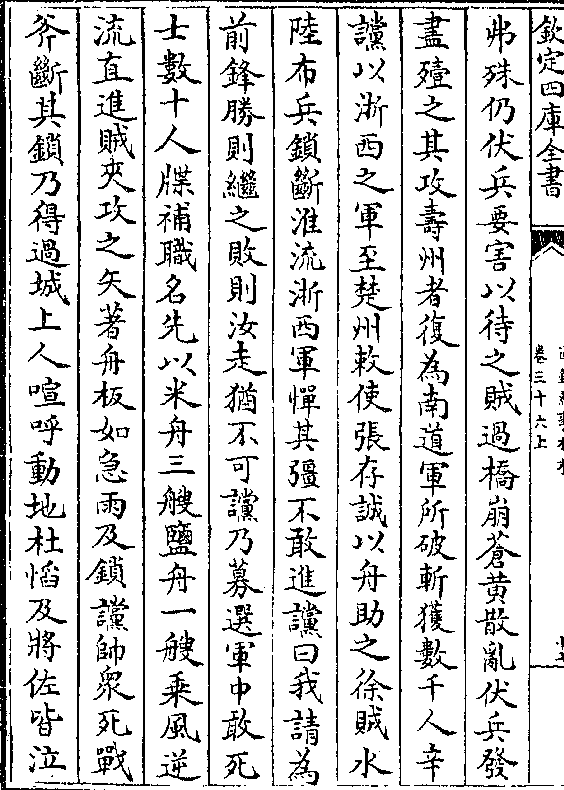 欽定四庫全書
卷三十六上
弗殊仍伏兵要害以待之賊過橋崩蒼黄散亂伏兵發
盡殪之其攻壽州者復為南道軍所破斬獲數千人辛
讜以浙西之軍至楚州敕使張存誠以舟助之徐賊水
陸布兵鎖斷淮流浙西軍憚其彊不敢進讜曰我請為
前鋒勝則繼之敗則汝走猶不可讜乃募選軍中敢死
士數十人牒補職名先以米舟三艘鹽舟一艘乗風逆
流直進賊夾攻之矢著舟板如急雨及鎖讜帥衆死戰
斧斷其鎖乃得過城上人喧呼動地杜慆及將佐皆泣